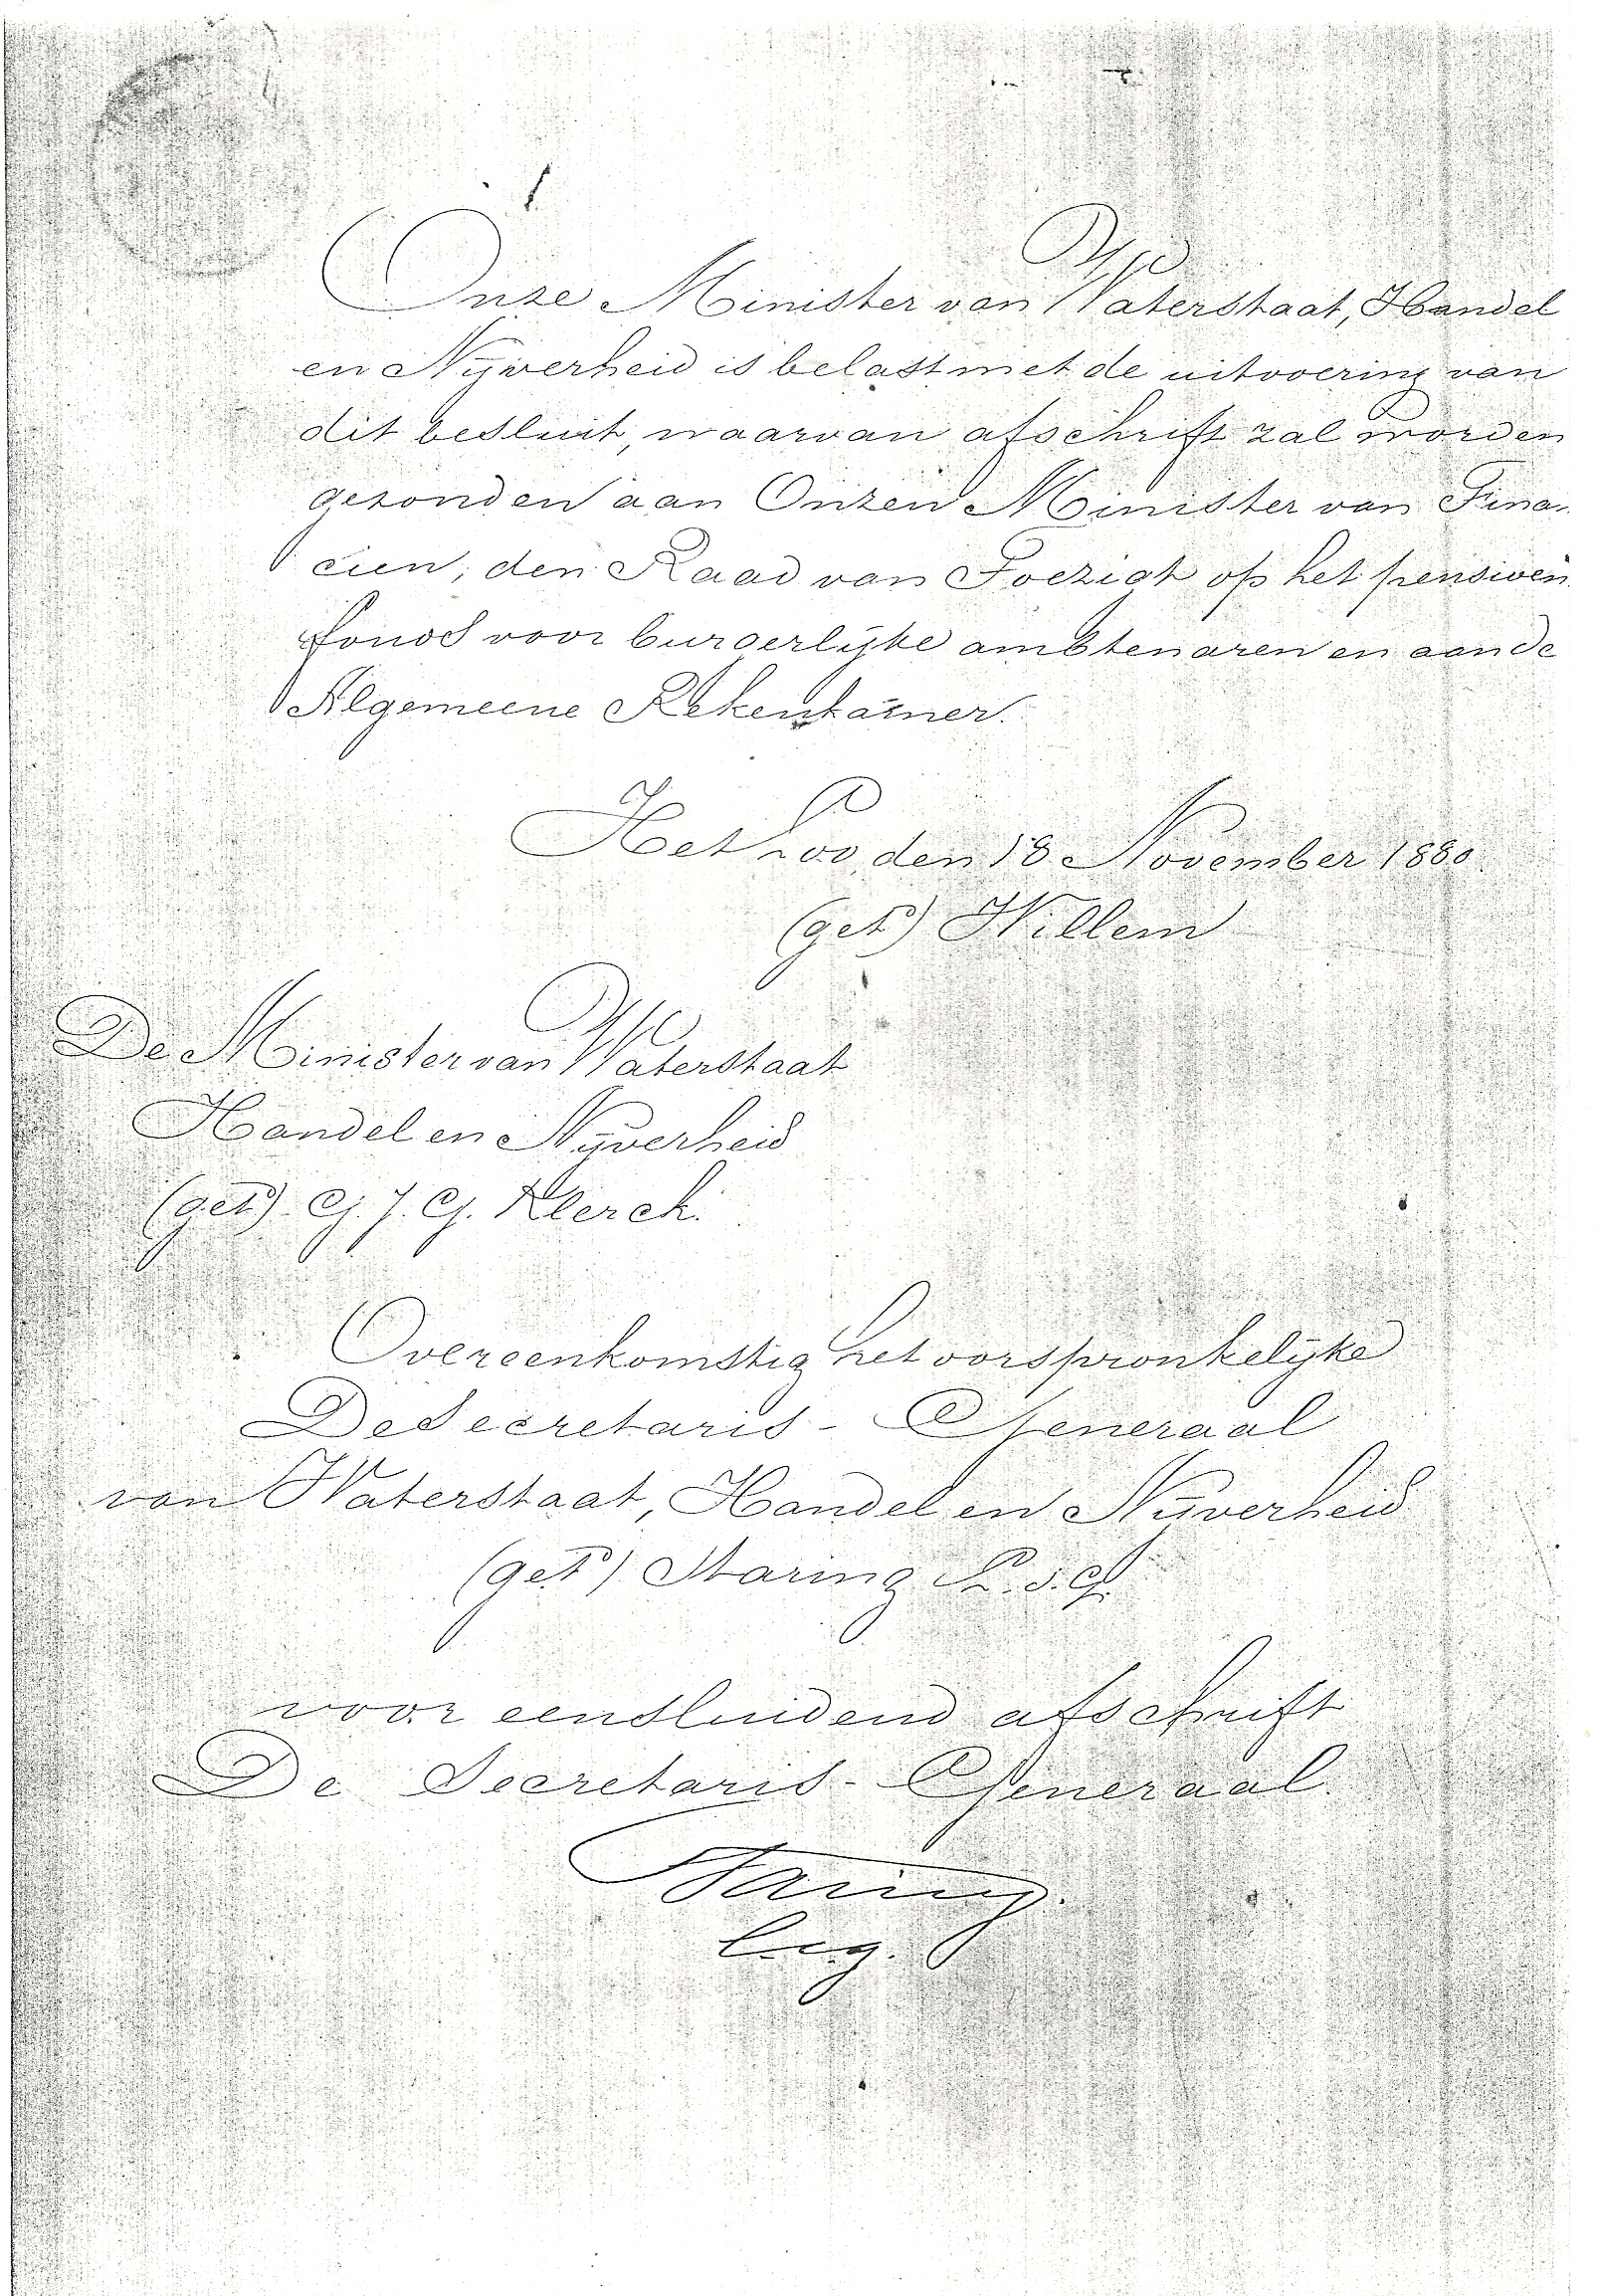 Onze Minister van Waterstaat, Handel
en Nijverheid is belast met de uitvoering van
dit besluit, waarvan afschrift zal worden
gezonden aan Onzen Minister van Finan-
cien, den Raad van Toezigt op het pensioen
fonds voor burgerlijke ambtenaren en aan de
Algemeene Rekenkamer.
Het Loo, den 18 November 1880.
(get) Willem
De Minister van Waterstaat
Handel en Nijverheid
(get) G. J. G. Klerck.
Overeenkomstig het oorspronkelijke
De Secretaris - Generaal
van Waterstaat, Handel en Nijverheid
(get) Staring L. S. G.
voor eensluidend afschrift
De Secretaris - Generaal.
Staring